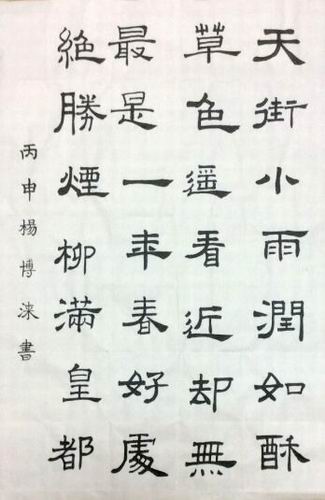 天街小雨潤如酥
草色遥看近却無
最是一年春好處
絶勝煙柳滿皇都
丙申楊博淶書